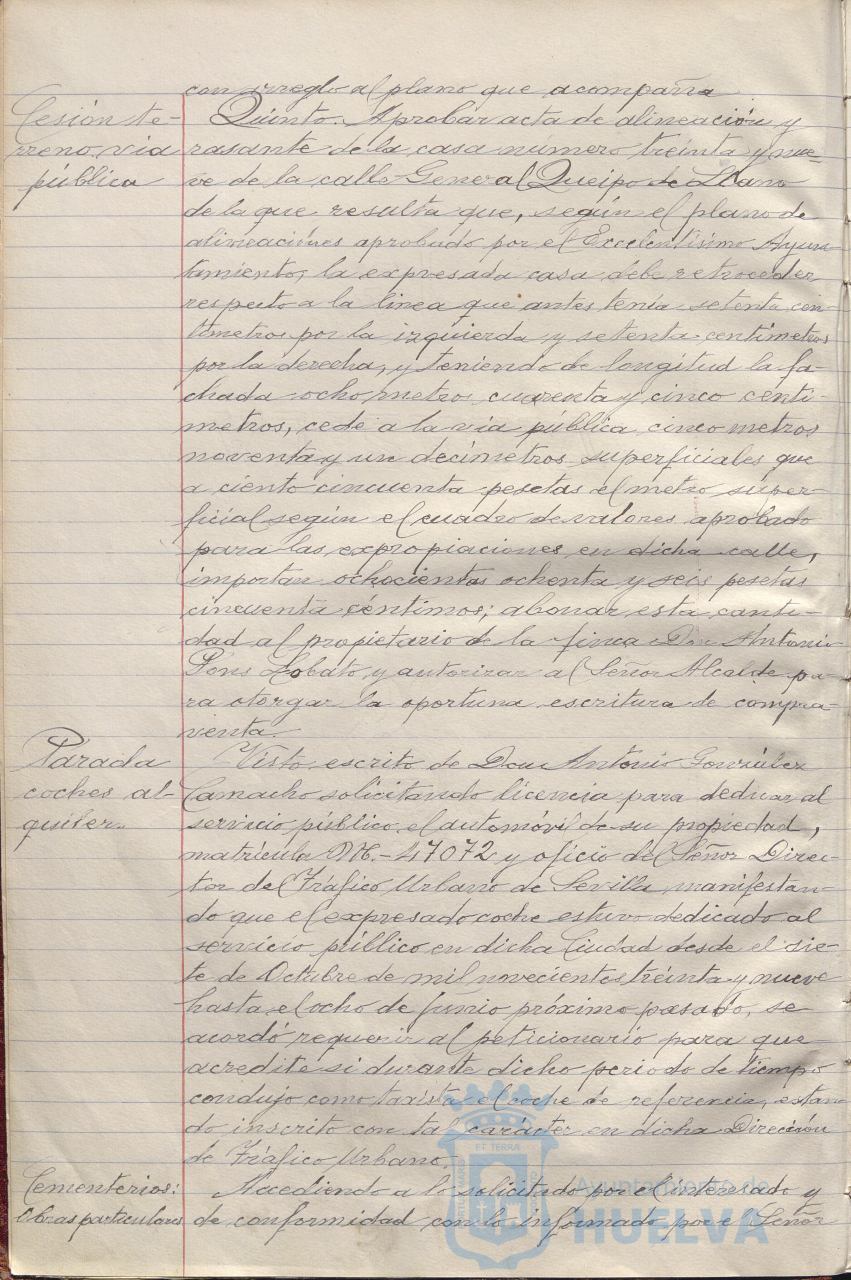 con arreglo al plano que acompaña
Cesión te-
rreno via
pública
Quinto. Aprobar acta de alineación y
rasante de la casa número treinta y nue-
ve de la calle General Queipo de Llano
de la que resulta que, según el plano de
alineaciónes aprobado por el Excelentísimo Ayun-
tamiento, la expresada casa debe retroceder
respecto a la linea que antes tenía setenta cen-
tímetros por la izquierda y setenta centímetros
por la derecha, y teniendo de longitud la fa-
chada ocho metros cuarenta y cinco centí-
metros, cede a la vía pública cinco metros
noventa y un decímetros superficiales que
a ciento cincuenta pesetas el metro super-
ficial según el cuadro de valores aprobado
para las expropiaciones en dicha calle,
importan ochocientas ochenta y seis pesetas
cincuenta céntimos; abonar esta canti-
dad al propietario de la finca Don Antonio
Pons Lobato, y autorizar al Señor Alcalde pa-
ra otorgar la oportuna escritura de compra-
venta.
Parada
coches al-
quiler.
Visto escrito de Don Antonio González
Camacho solicitando licencia para dedicar al
servicio público el automóvil de su propiedad,
matrícula M.-47072 y oficio del Señor Direc-
tor del Tráfico Urbano de Sevilla manifestan-
do que el expresado coche estuvo dedicado al
servicio público en dicha Ciudad desde el sie-
te de Octubre de mil novecientos treinta y nueve
hasta el ocho de junio próximo pasado, se
acordó requerir al peticionario para que
acredite si durante dicho periodo de tiempo
condujo como taxista el coche de referencia, estan-
do inscrito con tal carácter en dicha Dirección
de Tráfico Urbano.
Cementerios:
Obras particulares
Accediendo a lo solicitado por el interesado y
de conformidad con lo informado por el Señor
ET TERRA
Ayuntamiento de
HUELVA